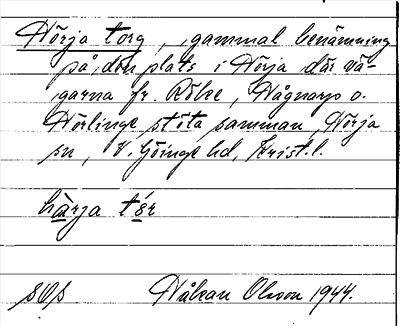 Hörja torg, gammal benämning
på den plats i Hörja där vä-
garna fr. Röke, Hågnarp o.
Hörlinge stöta samman, Hörja
sn, V. Göinge hd, Krist. l.
härja tȧr
SOS Håkan Olsson 1944.